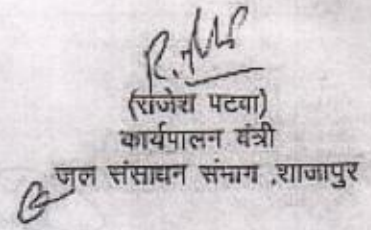 (राजेश पटवा)
कार्यपालन यंत्री
जल संसाधन संभाग ,शाजापुर